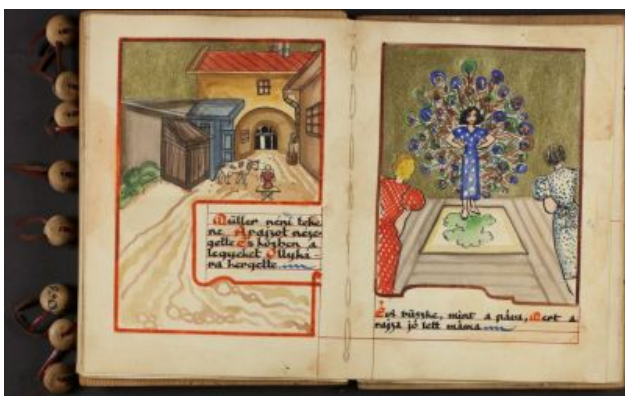 Müller néni tehe
ne A rajzot néze-
gette És közben a
legyeket Ollyká-
ra hergette
Évi büszke, mint a páva, Mert a
rajza jó lett máma